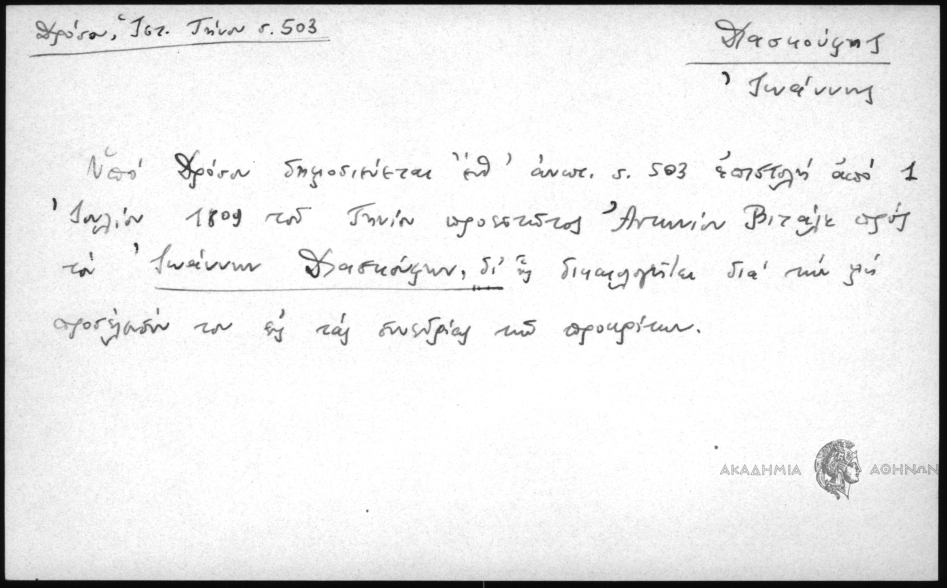 Δρόσου, Ἱστ. Τήνου σ. 503
Διασκούφης
Ἰωάννης
Ὑπό Δρόσου δημοσιεύεται ἔνθ' ἀνωτ. σ. 503 ἐπιστολή ἀπό 1
Ἰουλίου 1809 τοῦ Τηνίου προεστῶτος Ἀντωνίου Βιτάλε πρός
τόν Ἰωάννην Διασκούφην, δι' ἧς δικαιολογεῖται διά τήν μή
προσέλευσίν του εἰς τάς συνεδρίας τῶν προκρίτων.
ΑΚΑΔΗΜΙΑ ΑΘΗΝΩΝ